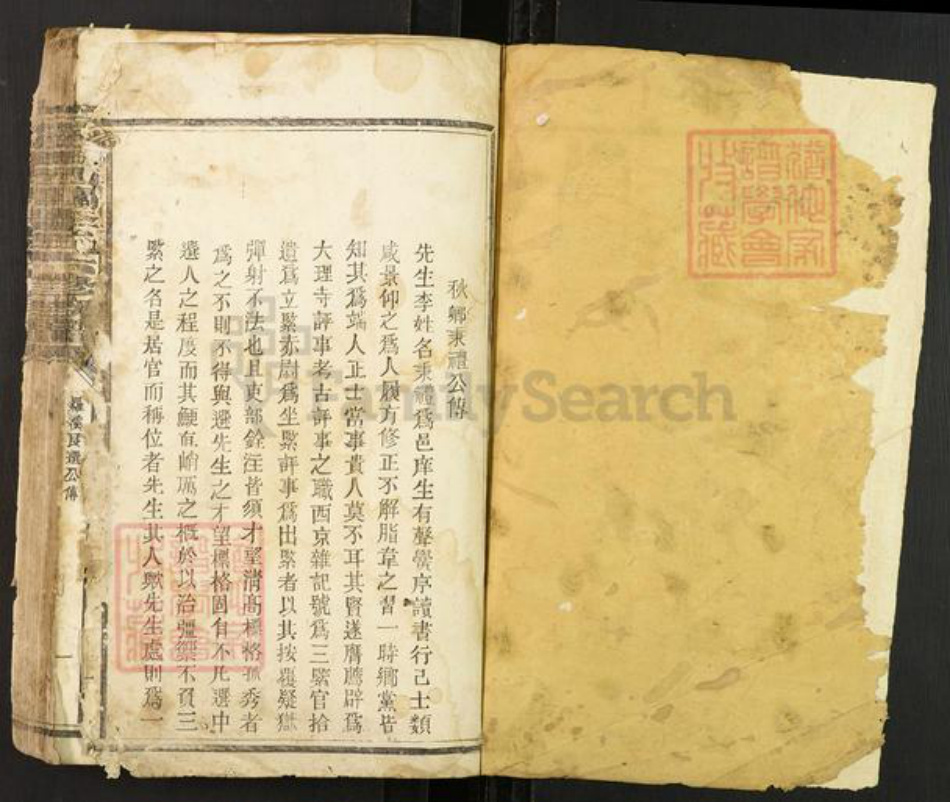 秋鄉秉禮公傳
先生李姓名秉禮爲邑庠生有聲黌序讀書行己士類
咸景仰之爲人履方修正不解脂韋之習一時鄉黨皆
知其爲端人正士當事貴人莫不耳其賢遂膺薦辟爲
大理寺評事考古評事之職西京雜記號爲三䋥官拾
遺爲立䋥赤尉爲坐䋥評事爲出䋥者以其按覆疑獄
彈射不法也且吏部銓注皆須才望清髙標格孤秀者
爲之不則不得與選先生之才望標格固自不凡選中
選人之程度而其鯁直之槪於以治疆禦不負三
䋥之名是居官而稱位者先生其人歟先生處則爲一
羅溪良選公傳
一
譜學會
收藏
FamilySearch